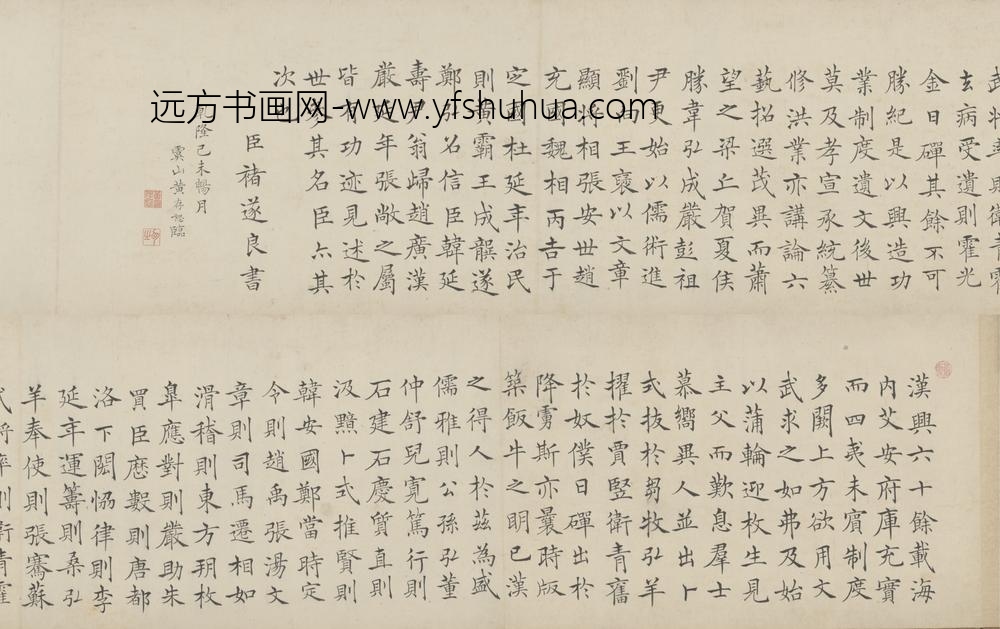 漢興六十餘載海
內艾安府庫充實
而四夷未賓制度
多闕上方欲用文
武求之如弗及始
以蒲輪迎枚生見
主父而歎息羣士
慕嚮異人並出卜
式拔於芻牧弘羊
擢於賈豎衛青奮
於奴僕日磾出於
降虜斯亦曩時版
築飯牛之明已漢
之得人於茲為盛
儒雅則公孫弘董
仲舒兒寬篤行則
石建石慶質直則
汲黯卜式推賢則
韓安國鄭當時定
令則趙禹張湯文
章則司馬遷相如
滑稽則東方朔枚
皐應對則嚴助朱
買臣歷數則唐都
洛下閎恊律則李
延年運籌則桑弘
羊奉使則張騫蘇
武將率則衛青霍
武將率則衛青霍
去病受遺則霍光
金日磾其餘不可
勝紀是以興造功
業制度遺文後世
莫及孝宣承統纂
修洪業亦講論六
藝招選茂異而蕭
望之梁丘賀夏侯
勝韋弘成嚴彭祖
尹更始以儒術進
劉向王襃以文章
顯將相張安世趙
充國魏相丙吉于
定國杜延年治民
則黃霸王成龔遂
鄭弘召信臣韓延
壽尹翁歸趙廣漢
嚴延年張敞之屬
皆有功迹見述於
世參其名臣亦其
次也
臣褚遂良書
乾隆己未暢月
虞山黃存臨
远方书画网-www.yfshuhua.com